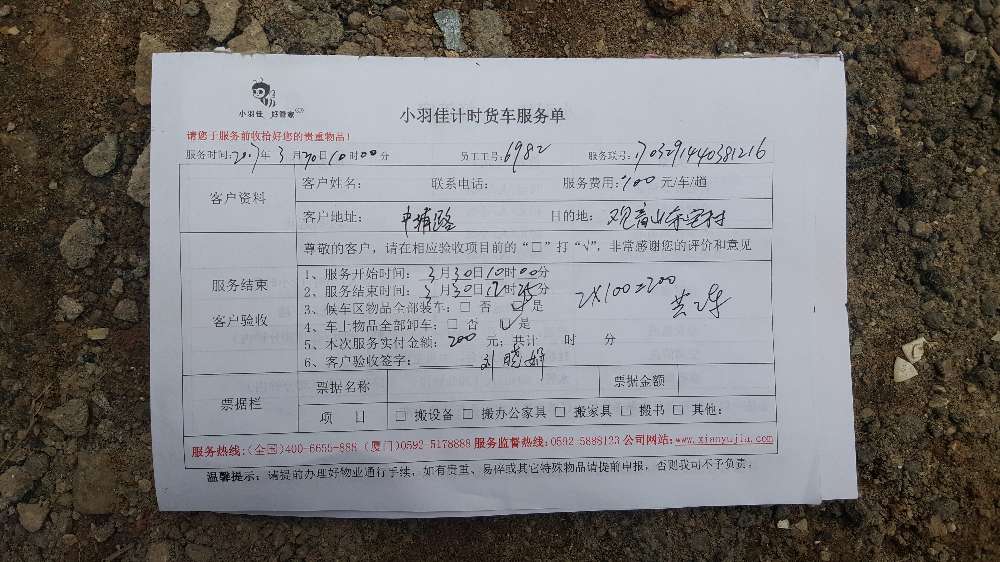 小羽佳 好管家
小羽佳计时货车服务单
请您于服务前收拾好您的贵重物品!
服务时间:2017年3月30日10时00分 员工工号:6982 服务联号:1703291440381216
客户资料 客户姓名: 联系电话: 服务费用:100元/车/趟
客户地址: 目的地: 观音山
尊敬的客户,请在相应验收项目前的“□”打“√”,非常感谢您的评价和意见
服务结束
客户验收
1、服务开始时间:3月30日10时00分
2、服务结束时间:3月30日12时25分
3、候车区物品全部装车:□ 否 ☑是
4、车上物品全部卸车:□ 否 ☑是
5、本次服务实付金额:200元;共计 时 分
6、客户验收签字:刘晓娟
2×100=200
共2车
票据栏 票据名称 票据金额
项 目 □ 搬设备 □ 搬办公家具 □ 搬家具 □ 搬书 □ 其他:
服务热线:(全国)400-6655-888 (厦门)0592-5178888 服务监督热线:0592-5888123 公司网站:www.xiaoyujia.com
温馨提示:请提前办理好物业通行手续,如有贵重、易碎或其它特殊物品请提前申报,否则我司不予负责。